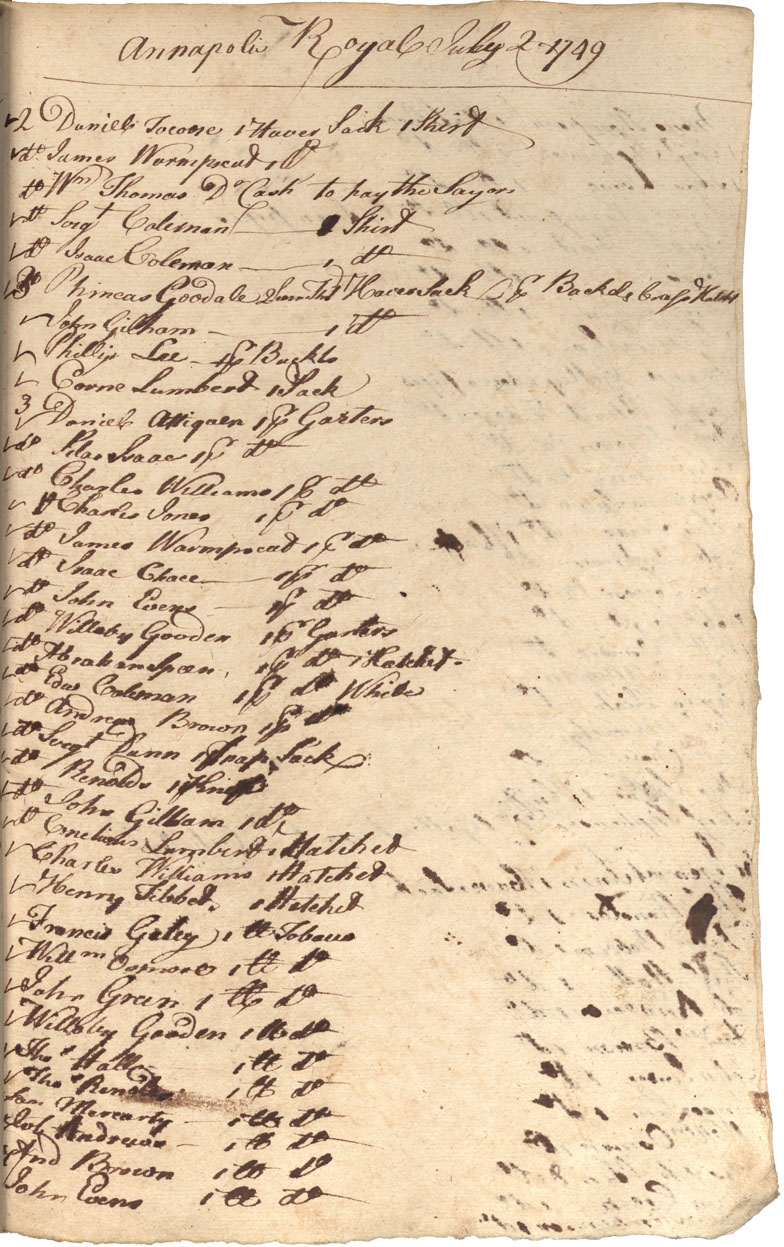 Annapolis Royal July 2 1749
2 Daniel Tocome 1 Haver Sack 1 Shirt
do James Wormpread 1 do
do Wm Thomas Do Cash to pay the Sayor
do Sergt Coleman 1 Shirt
do Isaac Coleman 1 do
3 Phineas Goodale Haver Sack Hatchet
John Gilham 1 do
Phillip Lee 1 pr Buckls
Corne Lumberd 1 Sack
3 Daniel Attiquen 1 pr Garters
do Isaac 1 pr do
do Charles Williams 1 pr do
do Charles Jones 1 pr do
do James Warmpread 1 pr do
do Isaac Chace 1 pr do
do John Evens 1 pr do
do Willsby Gooden 1 pr Garters
do Abraham 1 pr do 1 Hatchet
do Edw Coleman 1 pr do White
do Andrew Brown 1 pr do
do Sergt Dunn 1 Snap Sack
do Renolds 1 Knife
do John Gilham 1 do
do Cornelious Lumberd 1 Hatchet
Charles Williams 1 Hatchet
Henry Tibbets 1 Hatchet
Francis 1 tt Tobaco
Willm 1 tt do
John Green 1 tt do
Willsby Gooden 1 tt do
Thos Hall 1 tt do
Thos Renolds 1 tt do
Sam Mecarty 1 tt do
Job Andrews 1 tt do
And Brown 1 tt do
John Evens 1 tt do